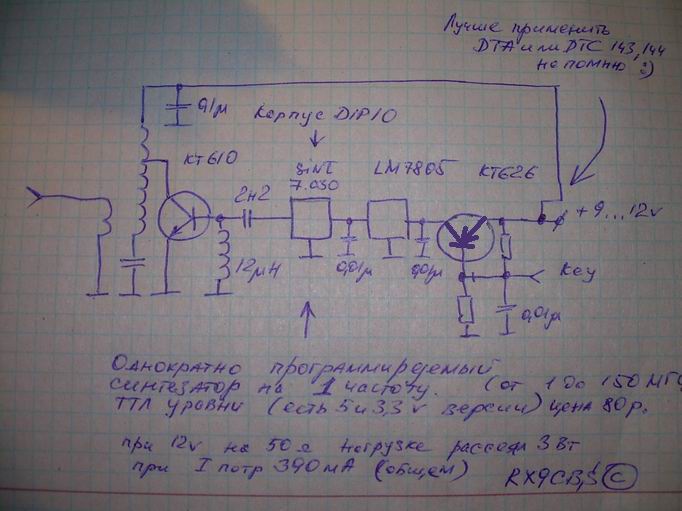 Лучше применить
DTA или DTC 143, 144
не помню :)
0,1μ
Корпус DIP10
КТ610
SiNT
7.030
LM7805
КТ626
2н2
+9...12v
12μH
0,01μ
0,01μ
Key
0,01μ
Однократно программируемый
синтезатор на 1 частоту. (от 1 до 150 МГц
ТТЛ уровни (есть 5 и 3,3 v версии) цена 80 р.
при 12v на 50 Ω нагрузке рассеял 3 Вт
при I потр 390 мА (общем)
RX9CBS ©